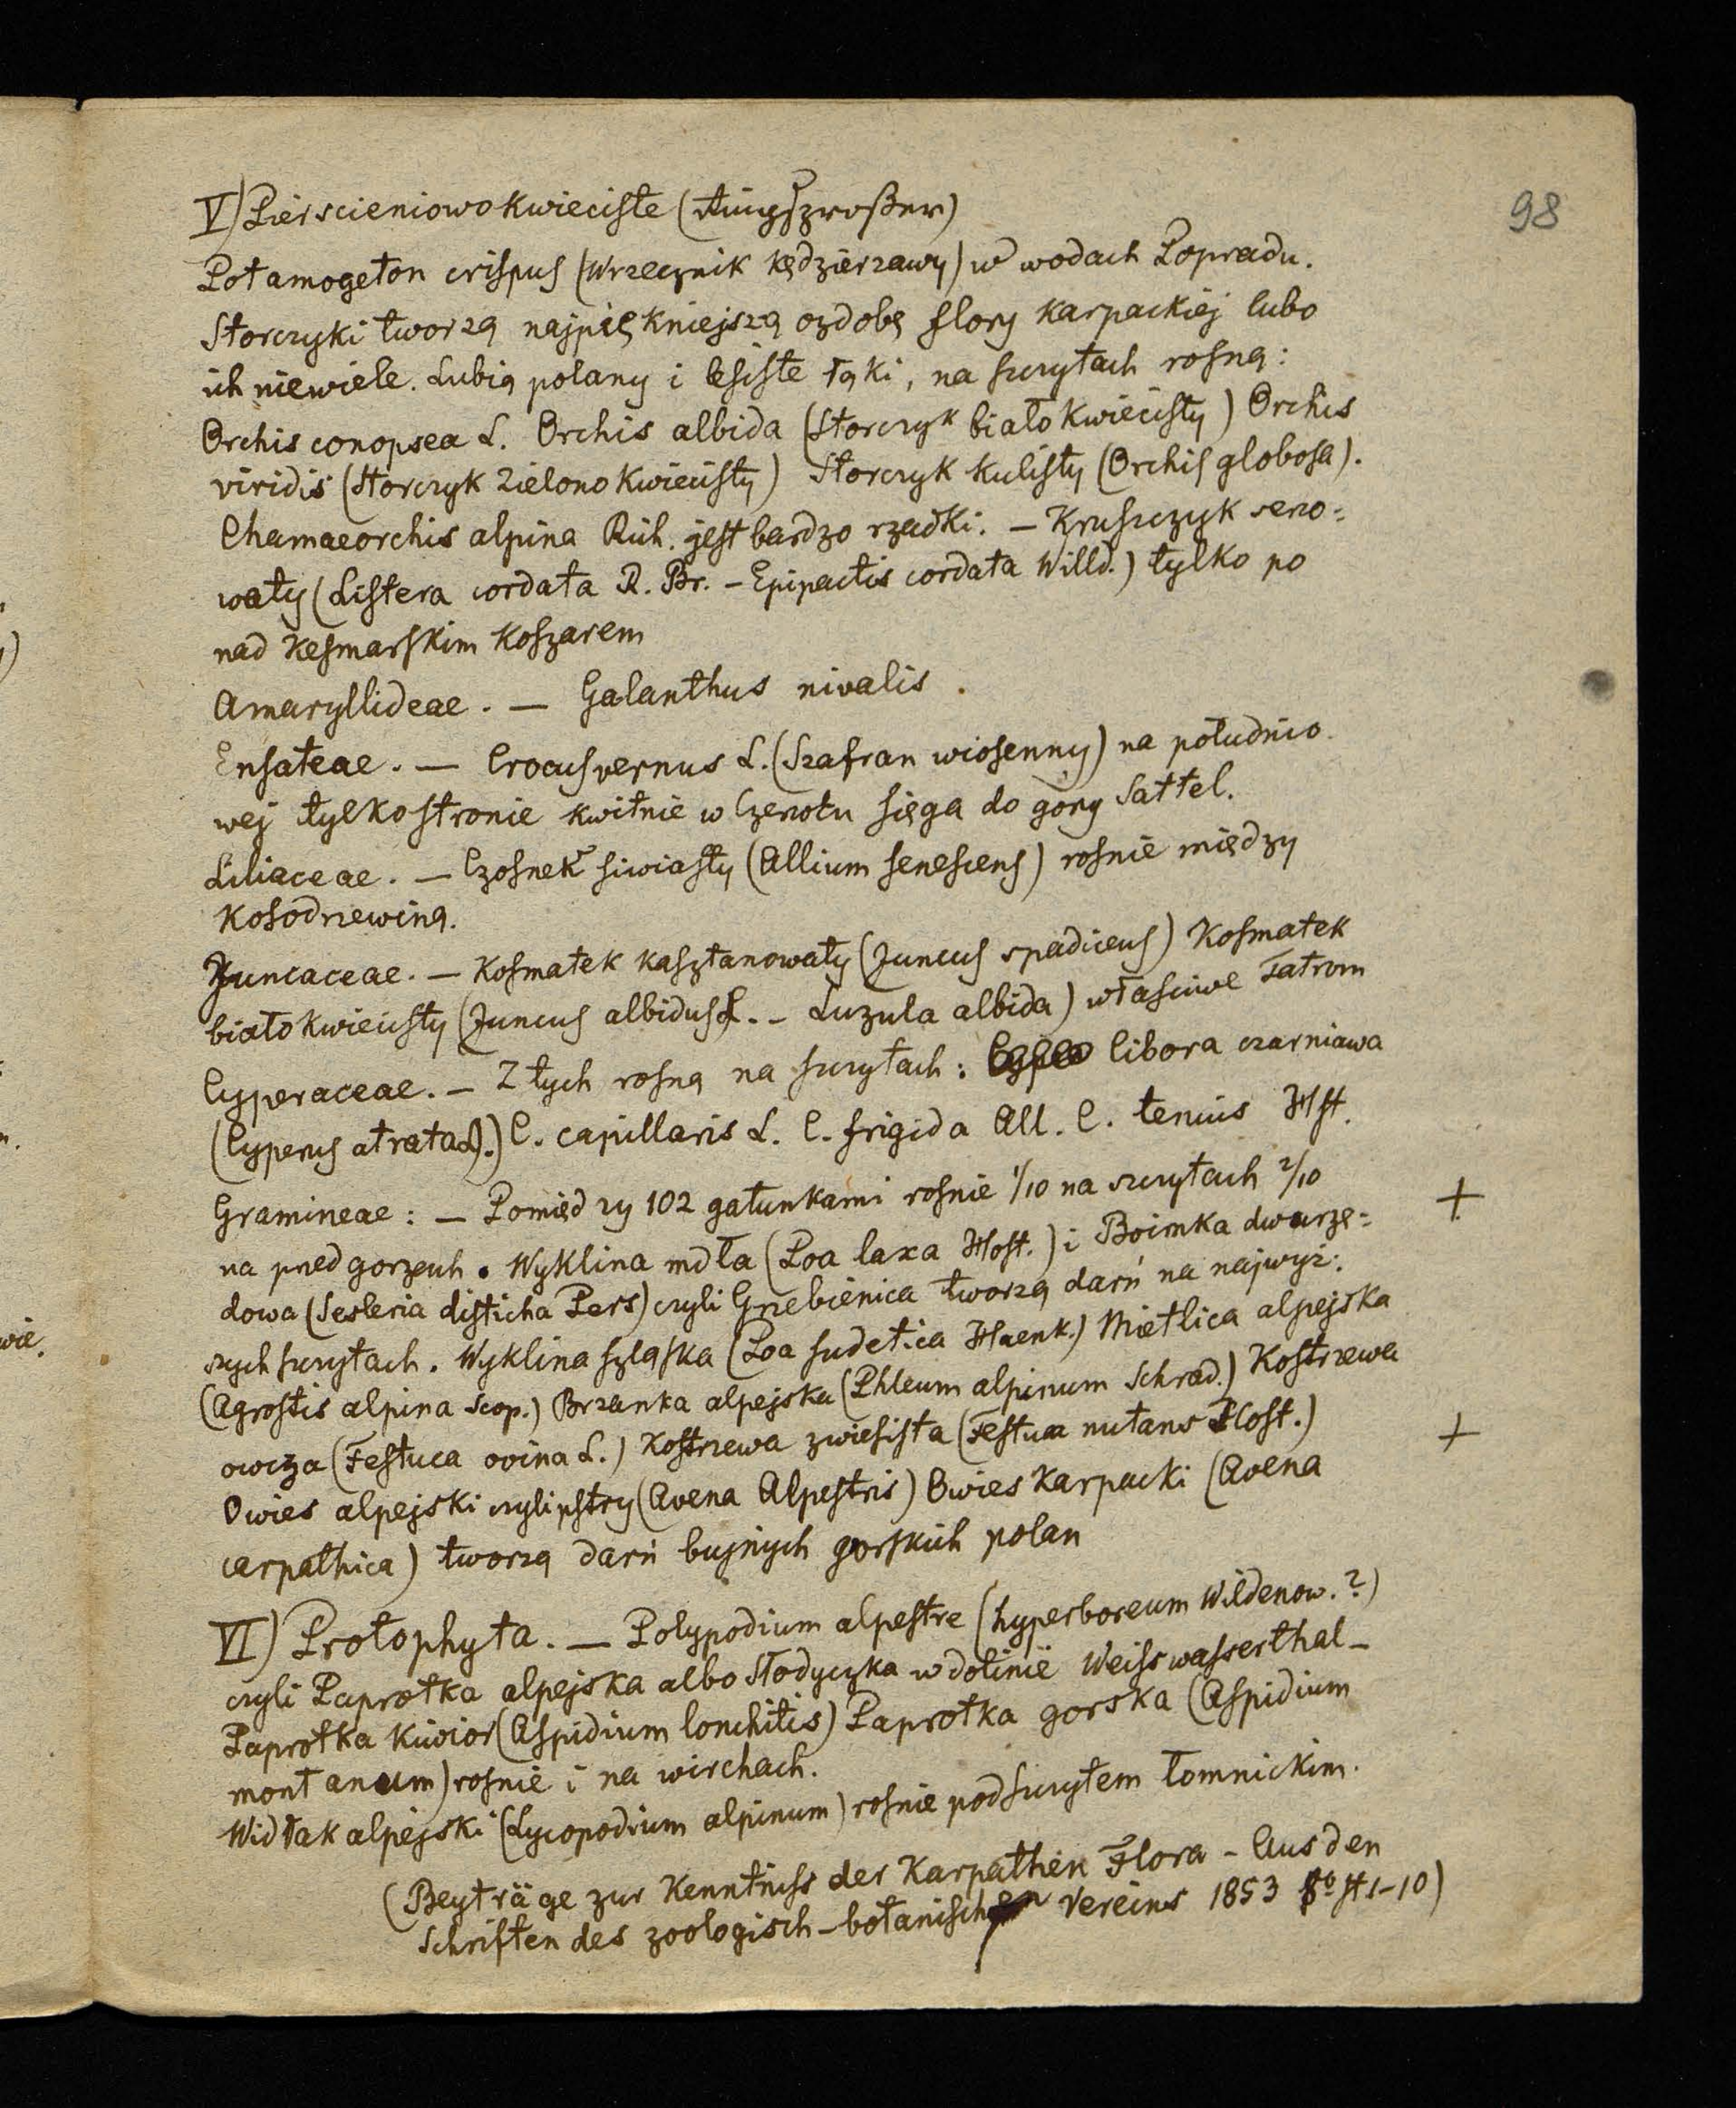 98
V) Pierscieniowo kwieciste (Ringsproßer)
Potamogeton crispus (Wrzecznik kędzierzawy) w wodach Popradu.
Storczyki tworzą najpiękniejszą ozdobę flory karpackiej lubo
ich niewiele. Lubią polany i lesiste łąki, na szczytach rosną:
Orchis conopsea L. Orchis albida (Storczyk białokwiecisty) Orchis
viridis (Storczyk zielonokwiecisty) Storczyk kulisty (Orchis globosa).
Chamaeorchis alpina Rich. jest bardzo rzadki. — Kruszczyk serco=
waty (Listera cordata R. Br. – Epipactis cordata Willd.) tylko po
nad Kesmarskim Koszarem
Amaryllideae. — Galanthus nivalis.
Ensateae. — Crocus vernus L. (Szafran wiosenny) na południo
wej tylko stronie kwitnie w Czerwcu sięga do góry Sattel.
Liliaceae. — Czosnek siwiasty (Allium senescens) rosnie między
Kosodrzewiną.
Juncaceae. — Kosmatek kasztanowaty (Juncus spadiceus) Kosmatek
białokwiecisty (Juncus albidus L. – Luzula albida) właściwe Tatrom
Cyperaceae. – Z tych rosną na szczytach: Cibora czarniawa
(Cyperus atrata L.) C. capillaris L. C. frigida All. C. tenuis Hst.
Gramineae: — Pomiędzy 102 gatunkami rosnie 1/10 na szczytach 2/10
na przedgorzach. Wyklina mdła (Poa laxa Host.) i Boimka dwurzę= +
dowa (Sesleria disticha Pers) czyli Grzebienica tworzą darń na najwyż:
szych szczytach. Wyklina szląska (Poa sudetica Haenk.) Mietlica alpejska
(Agrostis alpina Scop.) Brzanka alpejska (Phleum alpinum Schrad.) Kostrzewa
owcza (Festuca ovina L.) Kostrzewa zwiesista (Festuca nutans Host.) +
Owies alpejski czyli pstry (Avena Alpestris) Owies Karpacki (Avena
carpathica) tworzą darń bujnych gorskich polan
VI) Protophyta. — Polypodium alpestre (hyperboreum Wildenow.?)
czyli Paprotka alpejska albo Słodyczka w dolinie Weisswasserthal –
Paprotka (Aspidium lonchitis) Paprotka gorska (Aspidium
montanum) rosnie i na wirchach.
Widłak alpejski (Lycopodium alpinum) rosnie pod szczytem łomnickim.
(Beyträge zur Kenntniss der Karpathen Flora – Aus den
Schriften des zoologisch-botanischen Vereins 1853 8o st 1–10)